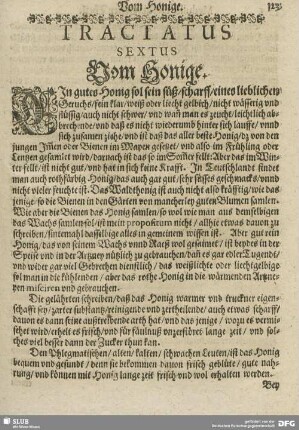 Vom Honige. 123.
TRACTATUS
SEXTUS
Vom Honige.
EIn gutes Honig sol sein süß/scharff/eines lieblichen
Geruchs/fein klar/weiß oder liecht gelbich/nicht wässerig und
flüssig/auch nicht schwer/und wañ man es zeucht/leichtlich ab-
brechende/und daß es nicht wiederumb hinter sich lauffe/unnd
sich zusamen ziehe/und ist daß das aller beste Honig/dz von den
jungen Im̃en oder Bienen im Mayen geseyet/und also im Frühling oder
Lentzen gesamlet wird/darnach ist das so im Som̃er fellt. Aber das im Win-
ter fellt/ist nicht gut/und hat in sich keine Krafft. In Teutschlandt findet
man auch rothlächtig Honig/das auch gar gut/sehr süsses geschmacks/unnd
nicht vieler feuchte ist. Das Waldthonig ist auch nicht also kräfftig/wie das
jenige/so die Bienen in den Gärten von mancherley guten Blumen samlen.
Wie aber die Bienen das Honig samlen/so wol wie man auf demselbigen
das Wachs samlen sol/ist mein propositum nicht/allhie etwas davon zu
schreiben/sintemahl dasselbige alles in gemeinem wissen ist. Aber gut rein
Honig/das von seinem Wachs unnd Rarß wol gesaimet/ist beydes in der
Speise und in der Artzney nützlich zu gebrauchen/daß es gar edler Tugendt/
und wider gar viel Gebrechen dienstlich/das weißlichte oder liechtgelbige
sol man in die kühlenden/aber das rothe Honig in die wärmenden Artzne-
yen misciren und gebrauchen.
Die gelährten schreiben/daß das Honig warmer und truckner eigen-
schafft sey/zarter substantz/reinigende und zertheilende/auch etwas scharff/
davon es dann seine außtreibende arth hat/und das jenige/worzu es vermi-
schet wird/erhelt es frisch/und für fäulnüß unzerstöret lange zeit/und sol-
ches viel besser dann der Zucker thun kan.
Den Phlegmatischen/alten/kalten/schwachen Leuten/ist das Honig
bequem und gesundt/denn sie bekommen davon frisch geblüte/gute nah-
rung/und können mit Honig lange zeit frisch und wol erhalten werden.
Bey
SLUB
DFG